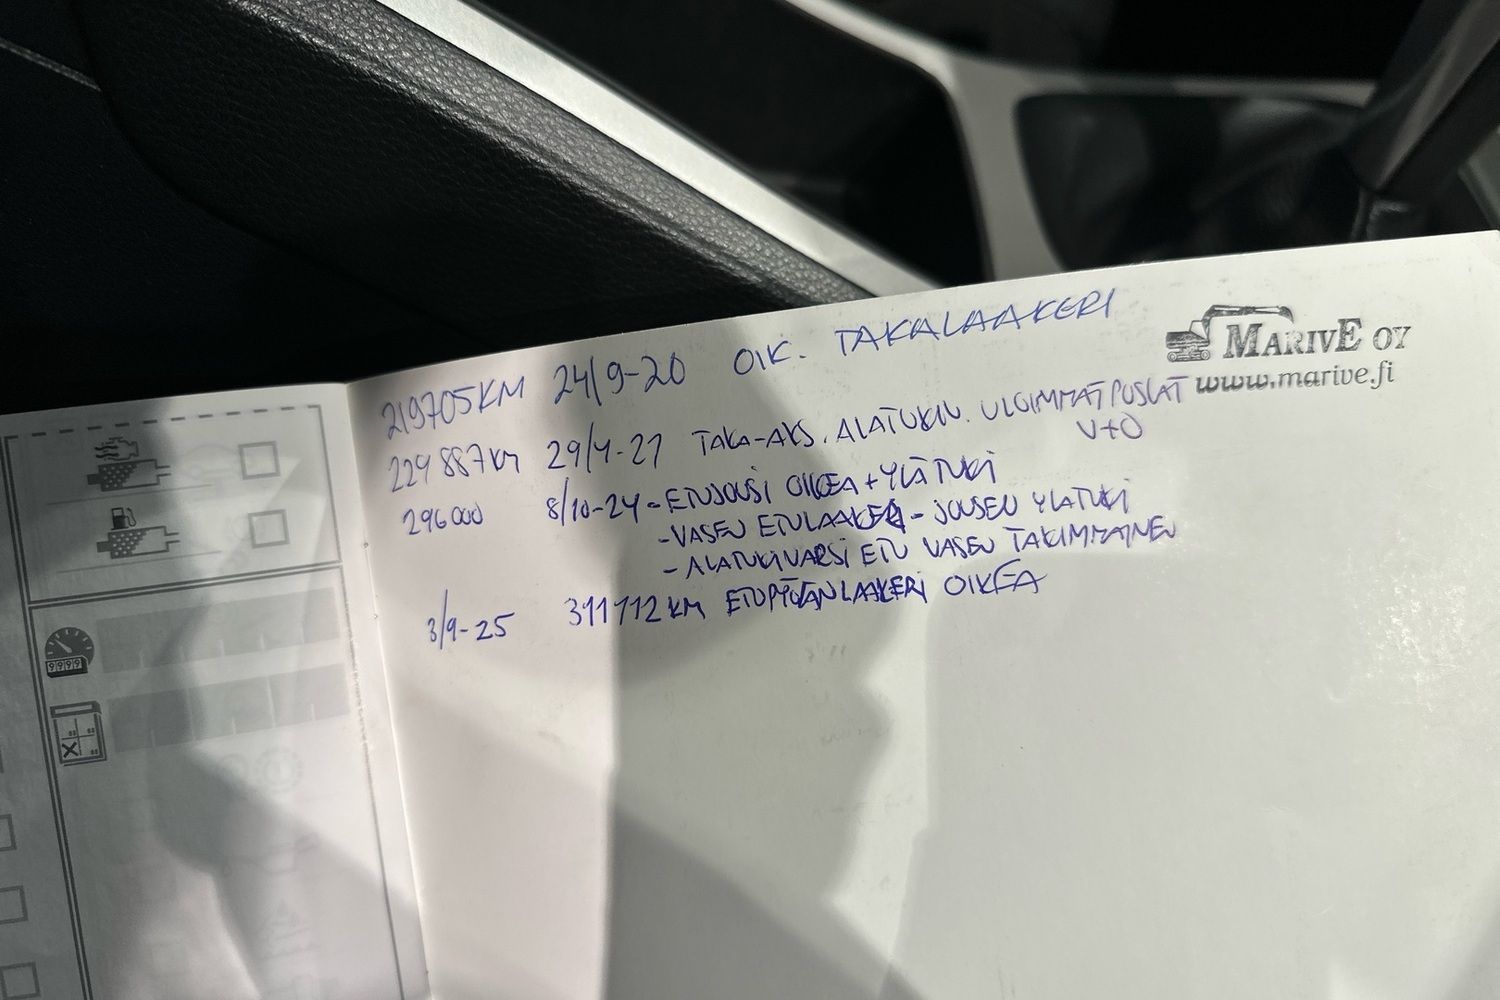 219705KM 24/9-20 OIK. TAKALAAKERI
MARIVE OY
www.marive.fi
229 887KM 29/4-21 TAKA-AKS. ALATUKIV. ULOIMMAT PUSLAT
V+O
296000 8/10-24 - ETUJOUSI OIKEA + YLÄTUKI
- VASEN ETULAAKERI - JOUSEN YLÄTUKI
- ALATUKIVARSI ETU VASEN TAKIMMAINEN
3/9-25 311712KM ETUPYÖRÄN LAAKERI OIKEA
9999